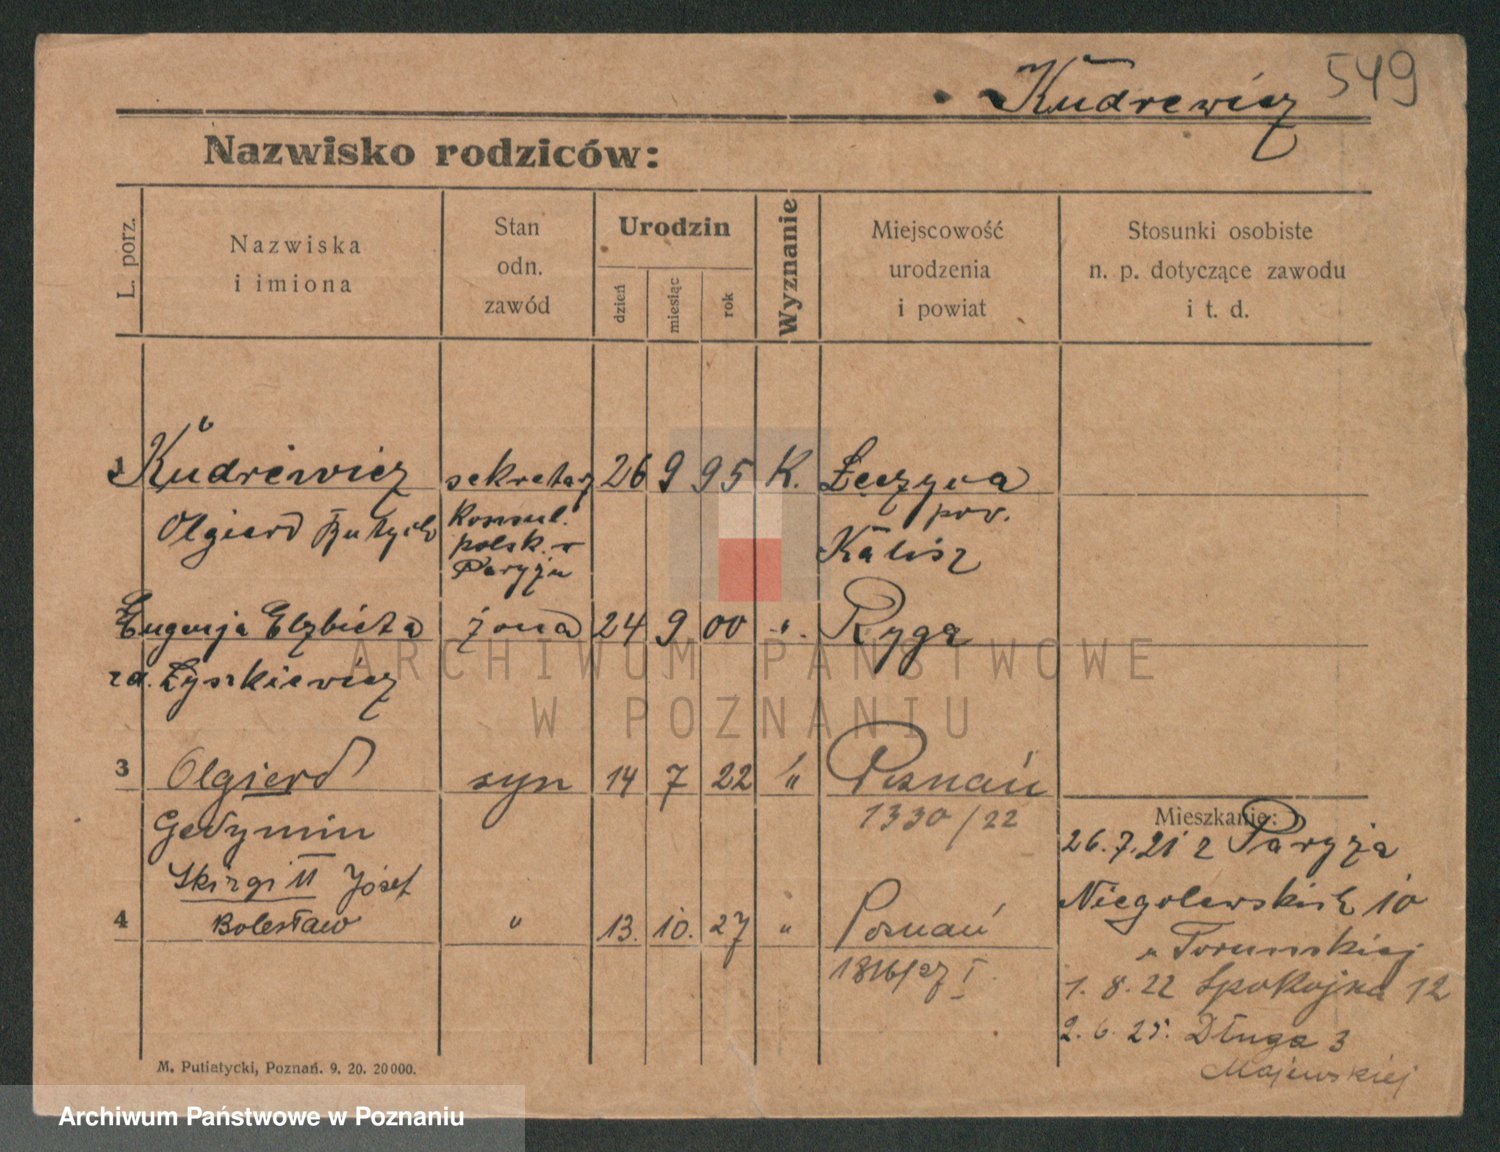 Kudrewicz 549
Nazwisko rodziców:
L. porz.
Nazwiska
i imiona
Stan
odn.
zawód
Urodzin
dzień
miesiąc
rok
Wyznanie
Miejscowość
urodzenia
i powiat
Stosunki osobiste
n. p. dotyczące zawodu
i t. d.
1 Kudrewicz sekretarz 26 9 95 K. Łęczyca
Olgierd konsul. pow.
polsk. w Kalisz
Paryżu
Eugenja Elzbieta żona 24 9 00 " Ryga
zd. Łyszkiewicz
ARCHIWUM PAŃSTWOWE
W POZNANIU
3 Olgierd syn 14 7 22 " Poznań
Gedymin 1330/22
Skirgiełł Józef
4 Bolesław " 13. 10. 27 " Poznań
1816/27 I.
Mieszkanie:
26.7.21 z Paryża
Niegolewskich 10
u Torunskiej
1.8.22 Spokojna 12
2.6.25. Długa 3
Majewskiej
M. Putiatycki, Poznań. 9. 20. 20000.
Archiwum Państwowe w Poznaniu